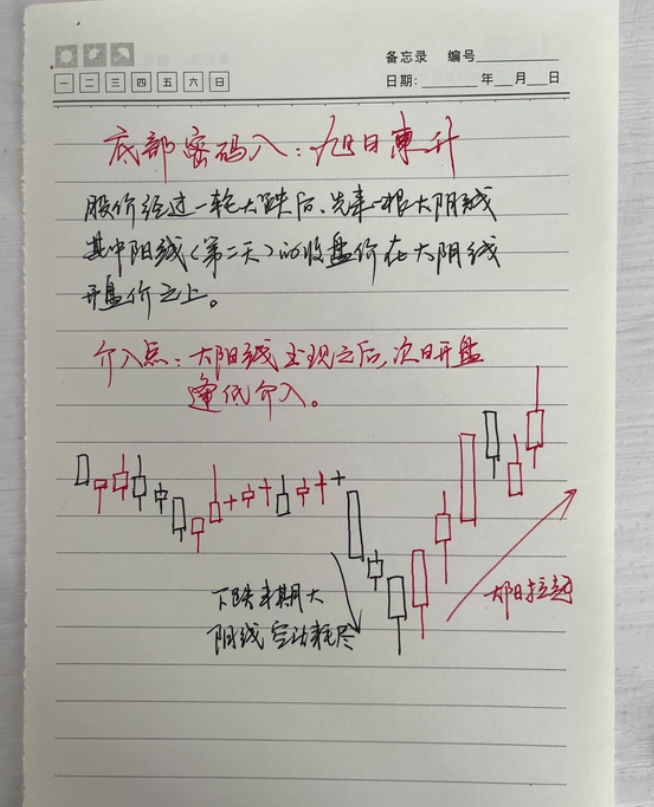 备忘录 编号
一 二 三 四 五 六 日
日期： 年 月 日
底部密码八：旭日東升
股价经过一轮大跌后、先来一根大阴线
其中阳线（第二天）的收盘价在大阴线
开盘价之上。
介入点：大阳线出现之后，次日开盘
逢低介入。
下跌末期大
阴线空法耗尽
大阳拉起